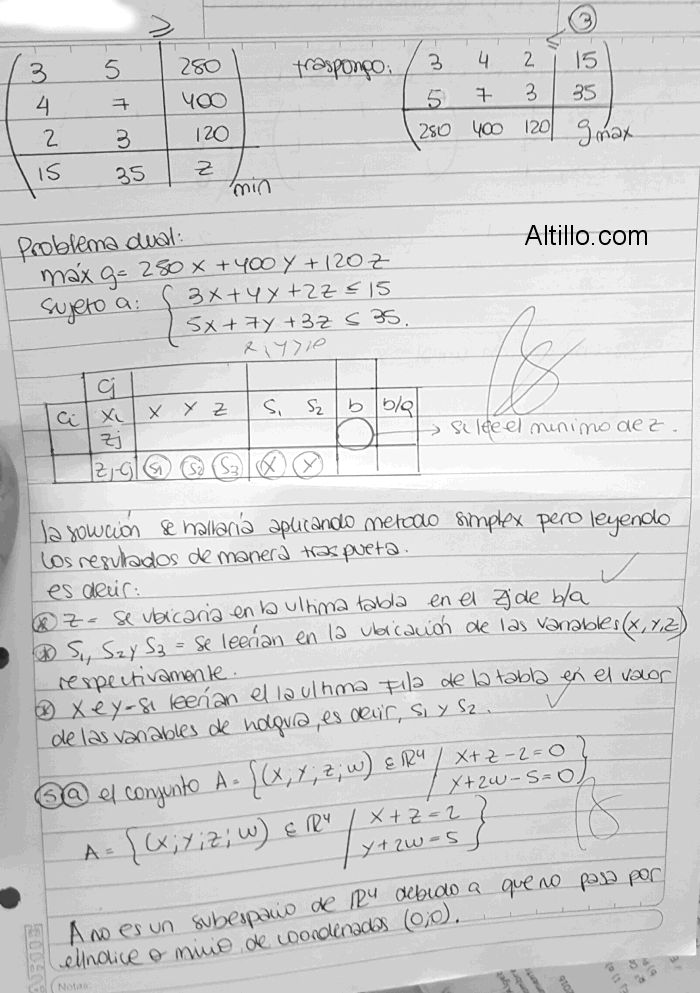 ③
≥ ≤
3 5 | 280 traspongo: 3 4 2 | 15
4 7 | 400 5 7 3 | 35
2 3 | 120 280 400 120 | g máx
15 35 | z min
Altillo.com
Problema dual:
máx g= 280x+400y+120z
sujeto a: { 3x+4y+2z ≤ 15
5x+7y+3z ≤ 35.
Cj
Ci Xi X Y Z S1 S2 b b/a
Zj → se lee el minimo de z.
Zj-Cj S1 S2 S3 X Y
la solución se hallaría aplicando metodo simplex pero leyendo
los resultados de manera traspuesta.
es decir:
* z = se ubicaria en la ultima tabla en el Zj de b/a
* S1, S2 y S3 = se leerían en la ubicación de las variables (x, y, z)
respectivamente.
* X e y = se leerían el la ultima fila de la tabla en el valor
de las variables de holgura, es decir, S1 y S2.
5 a el conjunto A = {(x, y, z, w) ∈ R4 / x+z-2=0
y+2w-5=0}
A = {(x; y; z; w) ∈ R4 / x+z=2
y+2w=5}
A no es un subespacio de R4 debido a que no pasa por
el o de coordenadas (0;0).
Notas: